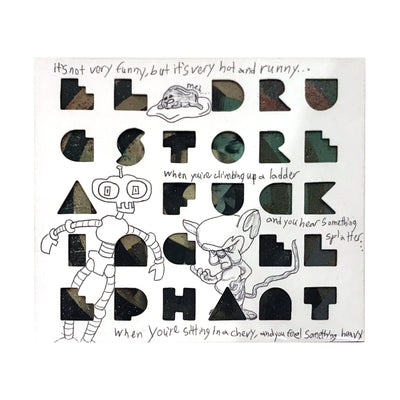 It's not very funny, but it's very hot and runny...
meh
EL DRU
GSTORE
when you're climbing up a ladder
A FUCK
and you hear something
splatter...
ING EL
EPHANT
when you're sitting in a chevy, and you feel something heavy